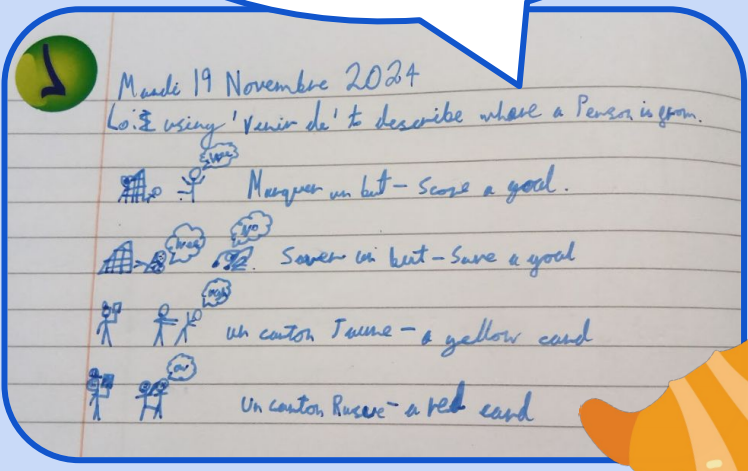 Mardi 19 Novembre 2024
Lo: I using 'Venir de' to describe where a Person is from.
Marquer un but – Score a goal.
NO
Saver un but – Save a goal
un carton Jaune – a yellow card
Un carton Rouge – a red card